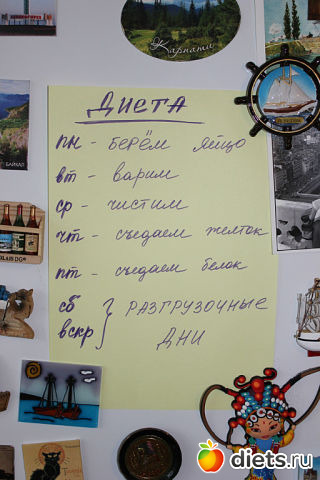 Карпаты
БАЙКАЛ
ДИЕТА
пн - берём яйцо
вт - варим
ср - чистим
чт - съедаем желток
пт - съедаем белок
сб
вскр } РАЗГРУЗОЧНЫЕ
ДНИ
diets.ru